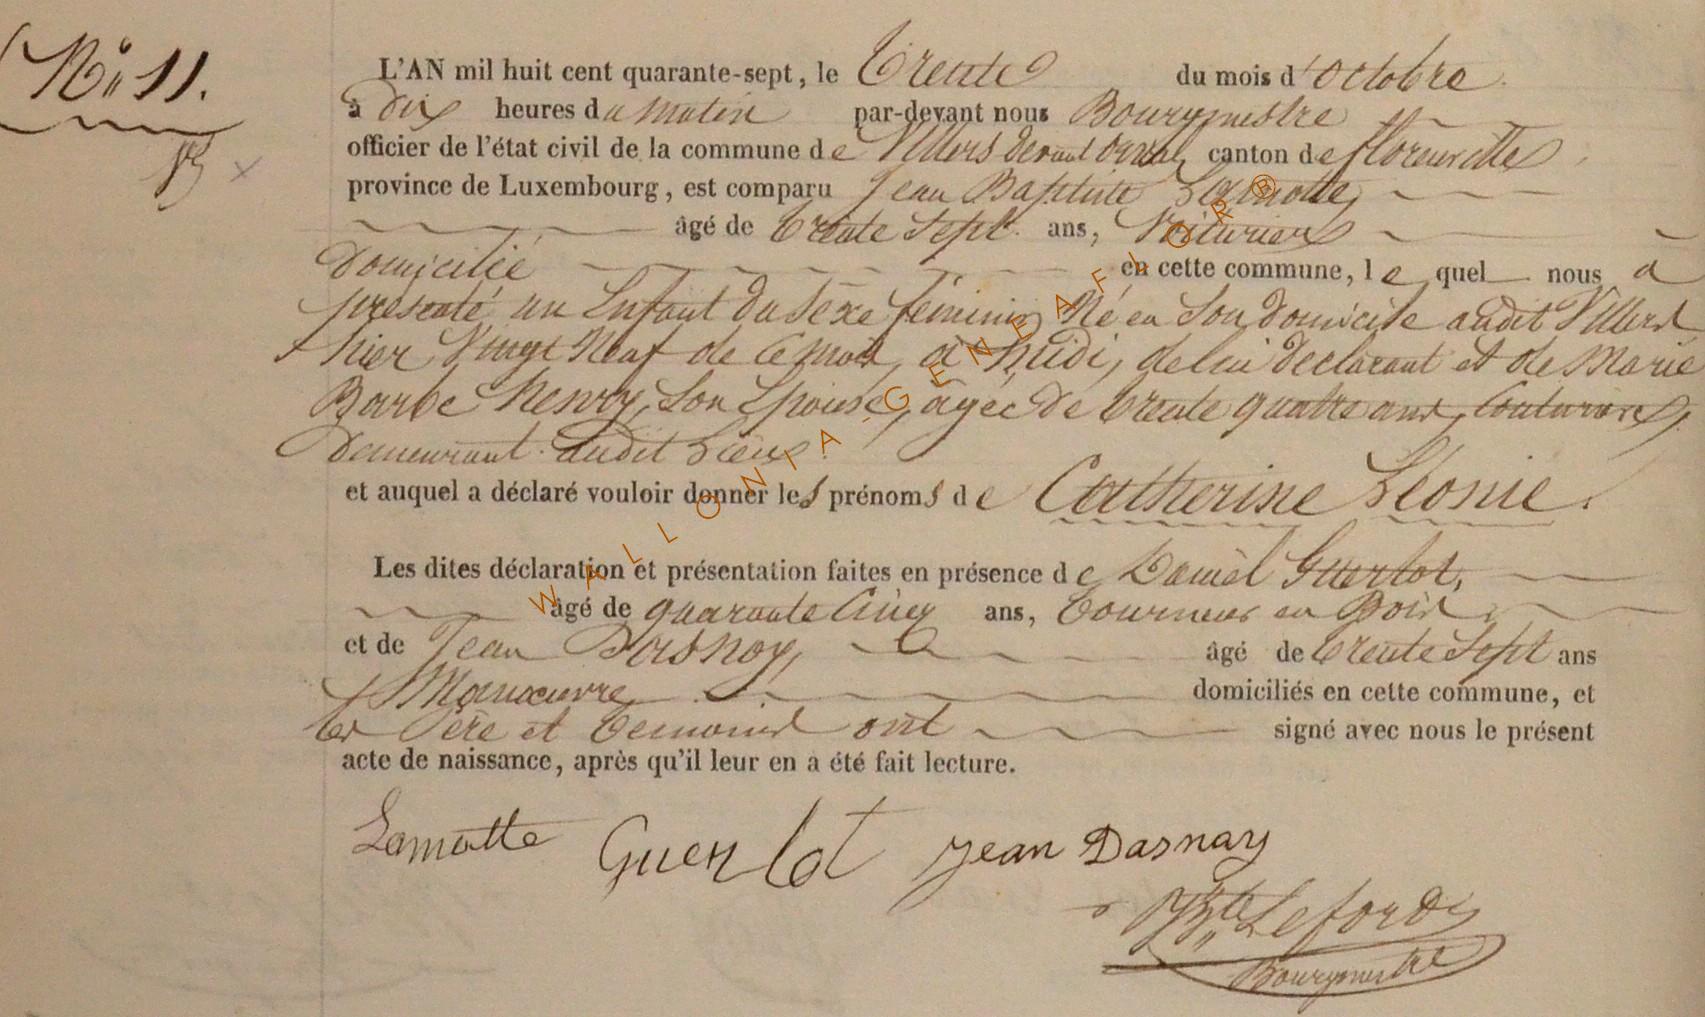 N° 11.
L'AN mil huit cent quarante-sept, le Trente du mois d'Octobre
à dix heures du matin par-devant nous Bourgmestre
officier de l'état civil de la commune de Villers devant orval, canton de florenville
province de Luxembourg, est comparu Jean Baptiste Lamotte,
âgé de trente Sept ans, Voiturier
Domicilié en cette commune, lequel nous a
présenté un Enfant du Sexe féminin Né en Son domicile audit Villers
hier Vingt Neuf de ce mois, à midi, de lui déclarant et de Marie
Barbe Henry, Son Epouse, agée de trente quatre ans, Couturière,
Demeurant audit Lieu
et auquel a déclaré vouloir donner les prénoms de Catherine Léonie.
Les dites déclaration et présentation faites en présence de Daniel Guerlot,
âgé de quarante Cinq ans, tourneur en Bois
et de Jean Dasnoy, âgé de trente Sept ans
Manœuvre domiciliés en cette commune, et
les Père et témoins ont signé avec nous le présent
acte de naissance, après qu'il leur en a été fait lecture.
Lamotte Guerlot jean Dasnoy
Lefort
Bourgmestre
WALLONIA-GENEAFLOR®